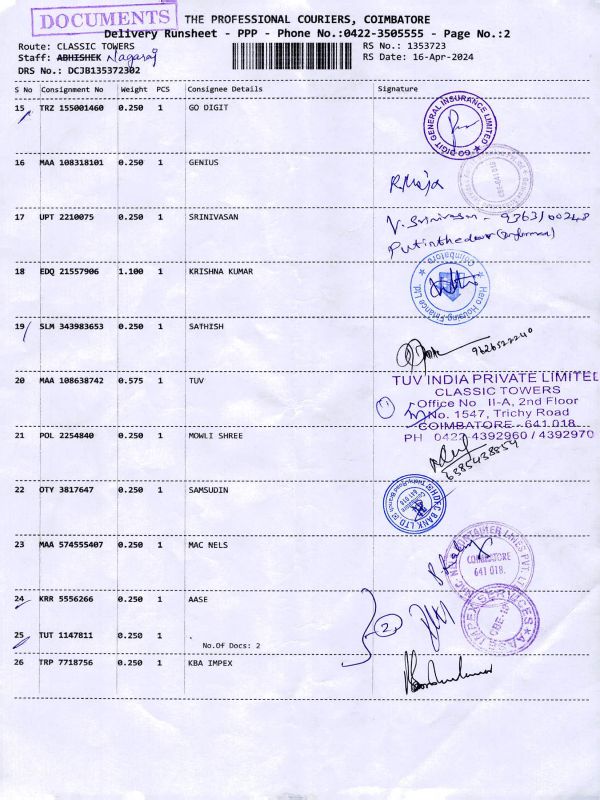 DOCUMENTS
THE PROFESSIONAL COURIERS, COIMBATORE
Delivery Runsheet - PPP - Phone No.:0422-3505555 - Page No.:2
Route: CLASSIC TOWERS
RS No.: 1353723
Staff: ABHISHEK Nagaraj
RS Date: 16-Apr-2024
DRS No.: DCJB135372302
S No Consignment No Weight PCS Consignee Details Signature
15 TRZ 155001460 0.250 1 GO DIGIT
GO DIGIT GENERAL INSURANCE LIMITED
16 MAA 108318101 0.250 1 GENIUS
R.Maja
17 UPT 2210075 0.250 1 SRINIVASAN
V. Srinivasan - 9363100248
Put in the door (Informed)
18 EDQ 21557906 1.100 1 KRISHNA KUMAR
Hero Housing Finance Pvt. Ltd. Coimbatore
19 SLM 343983653 0.250 1 SATHISH
9626522240
20 MAA 108638742 0.575 1 TUV
TUV INDIA PRIVATE LIMITED
CLASSIC TOWERS
Office No II-A, 2nd Floor
No. 1547, Trichy Road
COIMBATORE - 641 018.
PH 0422-4392960 / 4392970
21 POL 2254840 0.250 1 MOWLI SHREE
6385438854
22 OTY 3817647 0.250 1 SAMSUDIN
HDFC BANK LTD
23 MAA 574555407 0.250 1 MAC NELS
MAC NELS CONTAINER LINES PVT. LTD
COIMBATORE
641 018.
24 KRR 5556266 0.250 1 AASE
2
IMPEX SERVICES
CBE-18
25 TUT 1147811 0.250 1 .
No.Of Docs: 2
26 TRP 7718756 0.250 1 KBA IMPEX